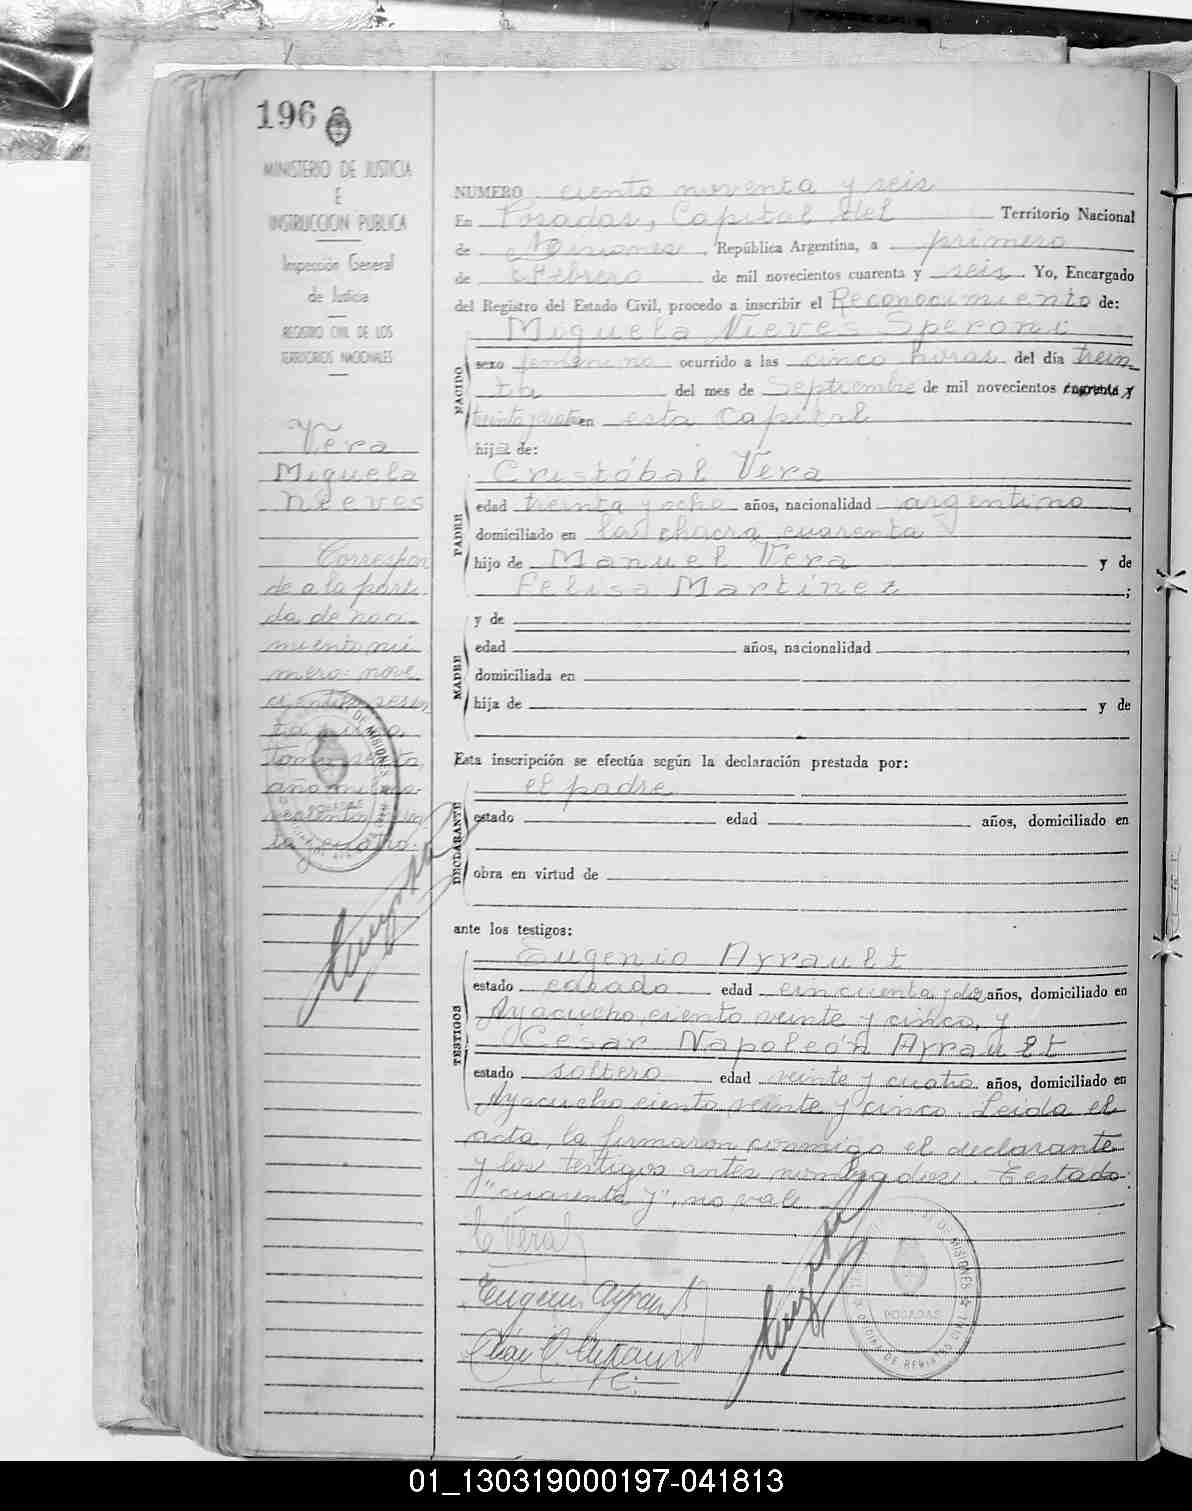 196
MINISTERIO DE JUSTICIA
E
INSTRUCCION PUBLICA
Inspección General
de Justicia
REGISTRO CIVIL DE LOS
TERRITORIOS NACIONALES
Vera
Miguela
Nieves
Correspon
de a la parti
da de naci
miento nú
mero nove
cientos sesen
ta
año mil no
vecientos trein
ta y cuatro.
NUMERO ciento noventa y seis
En Posadas, Capital del Territorio Nacional
de Misiones, República Argentina, a primero
de Febrero de mil novecientos cuarenta y seis. Yo, Encargado
del Registro del Estado Civil, procedo a inscribir el Reconocimiento de:
Miguela Nieves Speroni
NACIDO
sexo femenino ocurrido a las cinco horas del día trein
ta del mes de Septiembre de mil novecientos cuarenta y
treinta y cuatro en esta Capital
hija de:
PADRE
Cristóbal Vera
edad treinta y ocho años, nacionalidad argentino,
domiciliado en la chacra cuarenta
hijo de Manuel Vera y de
Felisa Martínez;
MADRE
y de
edad años, nacionalidad,
domiciliada en
hija de y de
Esta inscripción se efectúa según la declaración prestada por:
DECLARANTE
el padre
estado edad años, domiciliado en
obra en virtud de
ante los testigos:
TESTIGOS
Eugenio Ayrault
estado casado edad cincuenta y dos años, domiciliado en
Ayacucho, ciento veinte y cinco, y
César Napoleón Ayrault
estado soltero edad veinte y cuatro años, domiciliado en
Ayacucho ciento veinte y cinco. Leida el
acta, la firmaron conmigo el declarante
y los testigos antes nombrados. Testado:
"cuarenta y", no vale.
C Vera
Eugenio Ayrault
César N. Ayrault
POSADAS
01_130319000197-041813